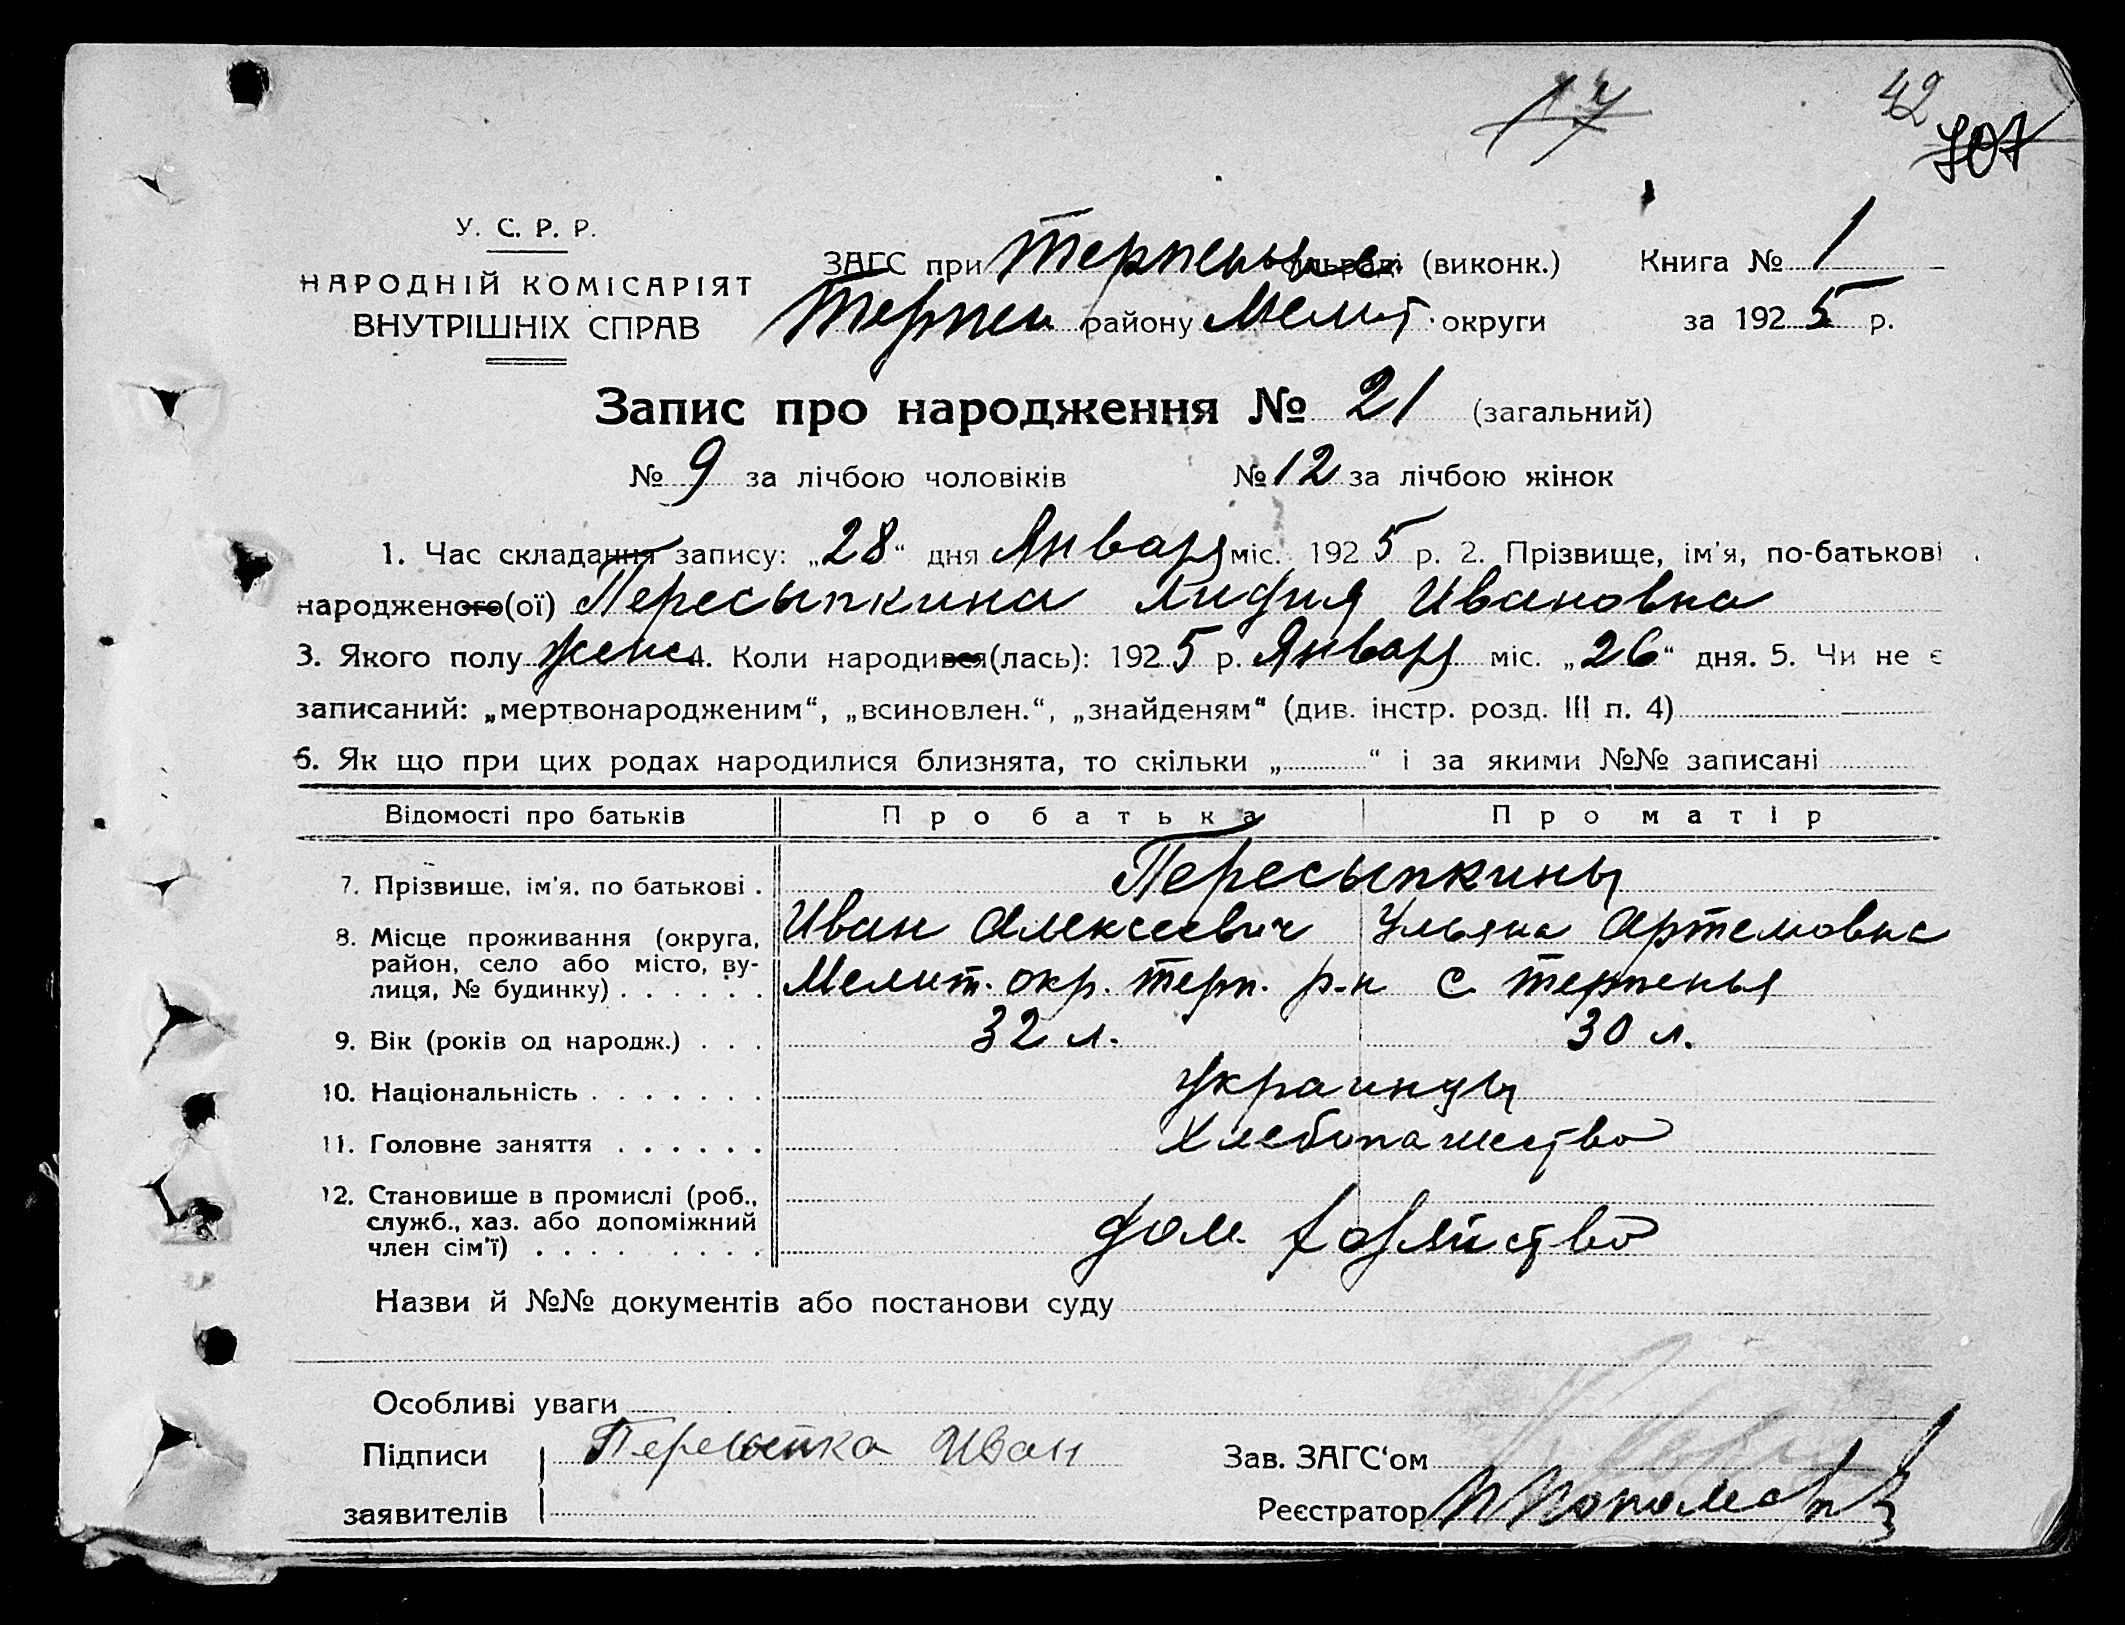 17
42
707
У. С. Р. Р.
НАРОДНІЙ КОМІСАРІЯТ
ВНУТРІШНІХ СПРАВ
ЗАГС при Терпенье сільраді (виконк.)
Терпен району Мелит. округи
Книга № 1
за 1925 р.
Запис про народження № 21 (загальний)
№ 9 за лічбою чоловіків № 12 за лічбою жінок
1. Час складання запису: „28“ дня Января міс. 1925 р. 2. Прізвище, ім'я, по-батькові
народженого(ої) Пересыпкина Лидия Ивановна
3. Якого полу женс 4. Коли народився(лась): 1925 р. Января міс. „26“ дня. 5. Чи не є
записаний: „мертвонародженим“, „всиновлен.“, „знайденям“ (див. інстр. розд. III п. 4)
6. Як що при цих родах народилися близнята, то скільки „ “ і за якими №№ записані
Відомості про батьків Про батька Про матір
7. Прізвище, ім'я, по батькові . Пересыпкины
Иван Алексеевич Ульяна Артемовна
8. Місце проживання (округа,
район, село або місто, ву-
лиця, № будинку) . . . . . . Мелит. окр. Терп. р-н с Терпенья
9. Вік (років од народж.) . . . 32 л. 30 л.
10. Національність . . . . . . . украинцы
11. Головне заняття . . . . . . Хлебопашество
12. Становище в промислі (роб.,
служб., хаз. або допоміжний
член сім'ї) . . . . . . . . . дом. хозяйство
Назви й №№ документів або постанови суду
Особливі уваги
Підписи Пересыпка Иван
заявителів
Зав. ЗАГС'ом
Реєстратор